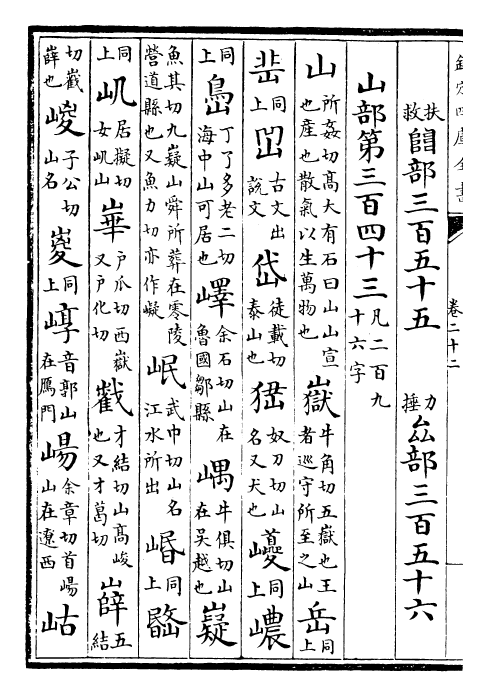 欽定四庫全書 卷二十二
扶救 𨺅部三百五十五 力捶 厽部三百五十六
山部第三百四十三 凡二百九十六字
山 所姦切高大有石曰山山宣也產也散氣以生萬物也 嶽 牛角切五嶽也王者巡守所至之山 岳 同上
同上 古文出說文 岱 徒載切泰山也 峱 奴刀切山名又犬也 巎 同上 嶩
同上 島 丁了多老二切海中山可居也 嶧 余石切山在魯國鄒縣 嵎 牛俱切山在吳越也 嶷
魚其切九嶷山舜所葬在零陵營道縣也又魚力切亦作㠜 岷 武巾切山名江水所出 㟭 同上
同上 㞦 居擬切女㞦山 崋 戶爪切西嶽又戶化切 巀 才結切山高峻也又才葛切 嶭 五結
切巀嶭也 嵕 子公切山名 嵏 同上 崞 音郭山在鴈門 崵 余章切首崵山在遼西 岵